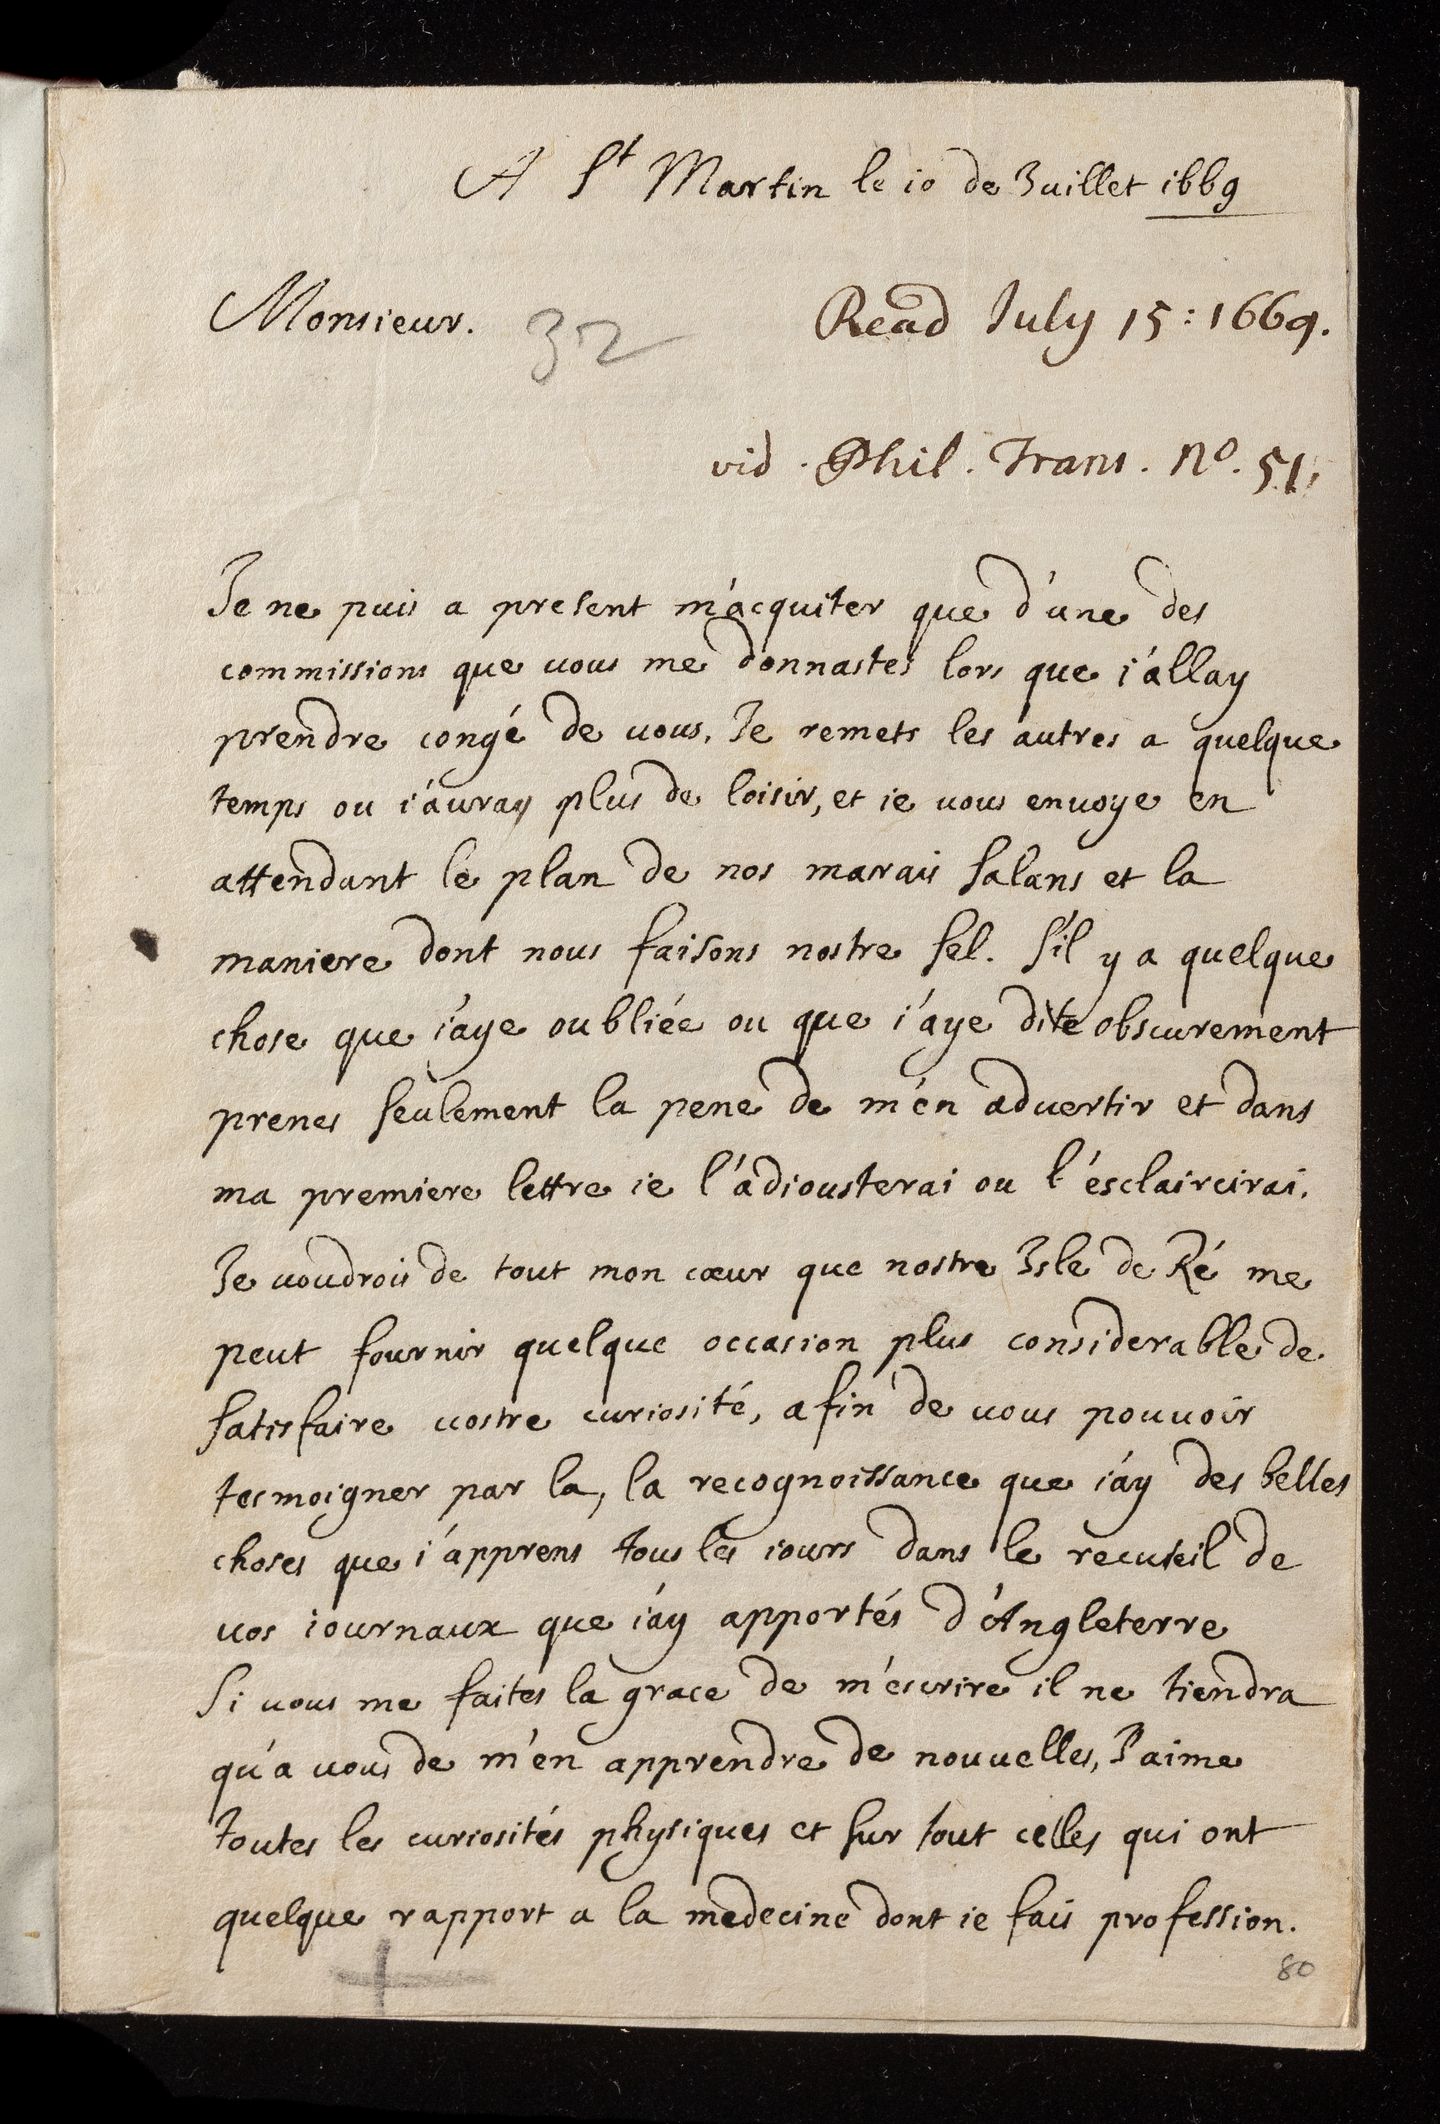 A St Martin le 10 de Juillet 1669
Monsieur. 32 Read July 15: 1669.
vid. Phil. Trans. No. 51.
Je ne puis a present m'acquiter que d'une des
commissions que vous me donnastes lors que i'allay
prendre congé de vous. Je remets les autres a quelque
temps ou i'auray plus de loisir, et ie vous envoye en
attendant le plan de nos marais salans et la
maniere dont nous faisons nostre sel. S'il y a quelque
chose que i'aye oubliée ou que i'aye dite obscurement
prenes seulement la pene de m'en advertir et dans
ma premiere lettre ie l'adiousterai ou l'ésclaircirai.
Je voudrois de tout mon cœur que nostre Isle de Ré me
peut fournir quelque occasion plus considerable de
satisfaire vostre curiosité, afin de vous pouvoir
tesmoigner par la, la recognoissance que i'ay des belles
choses que i'apprens tous les iours dans le recueil de
vos iournaux que i'ay apportés d'Angleterre
Si vous me faites la grace de m'escrire il ne tiendra
qu'a vous de m'en apprendre de nouvelles, J'aime
toutes les curiosités physiques et sur tout celles qui ont
quelque rapport a la medecine dont ie fais profession.
80